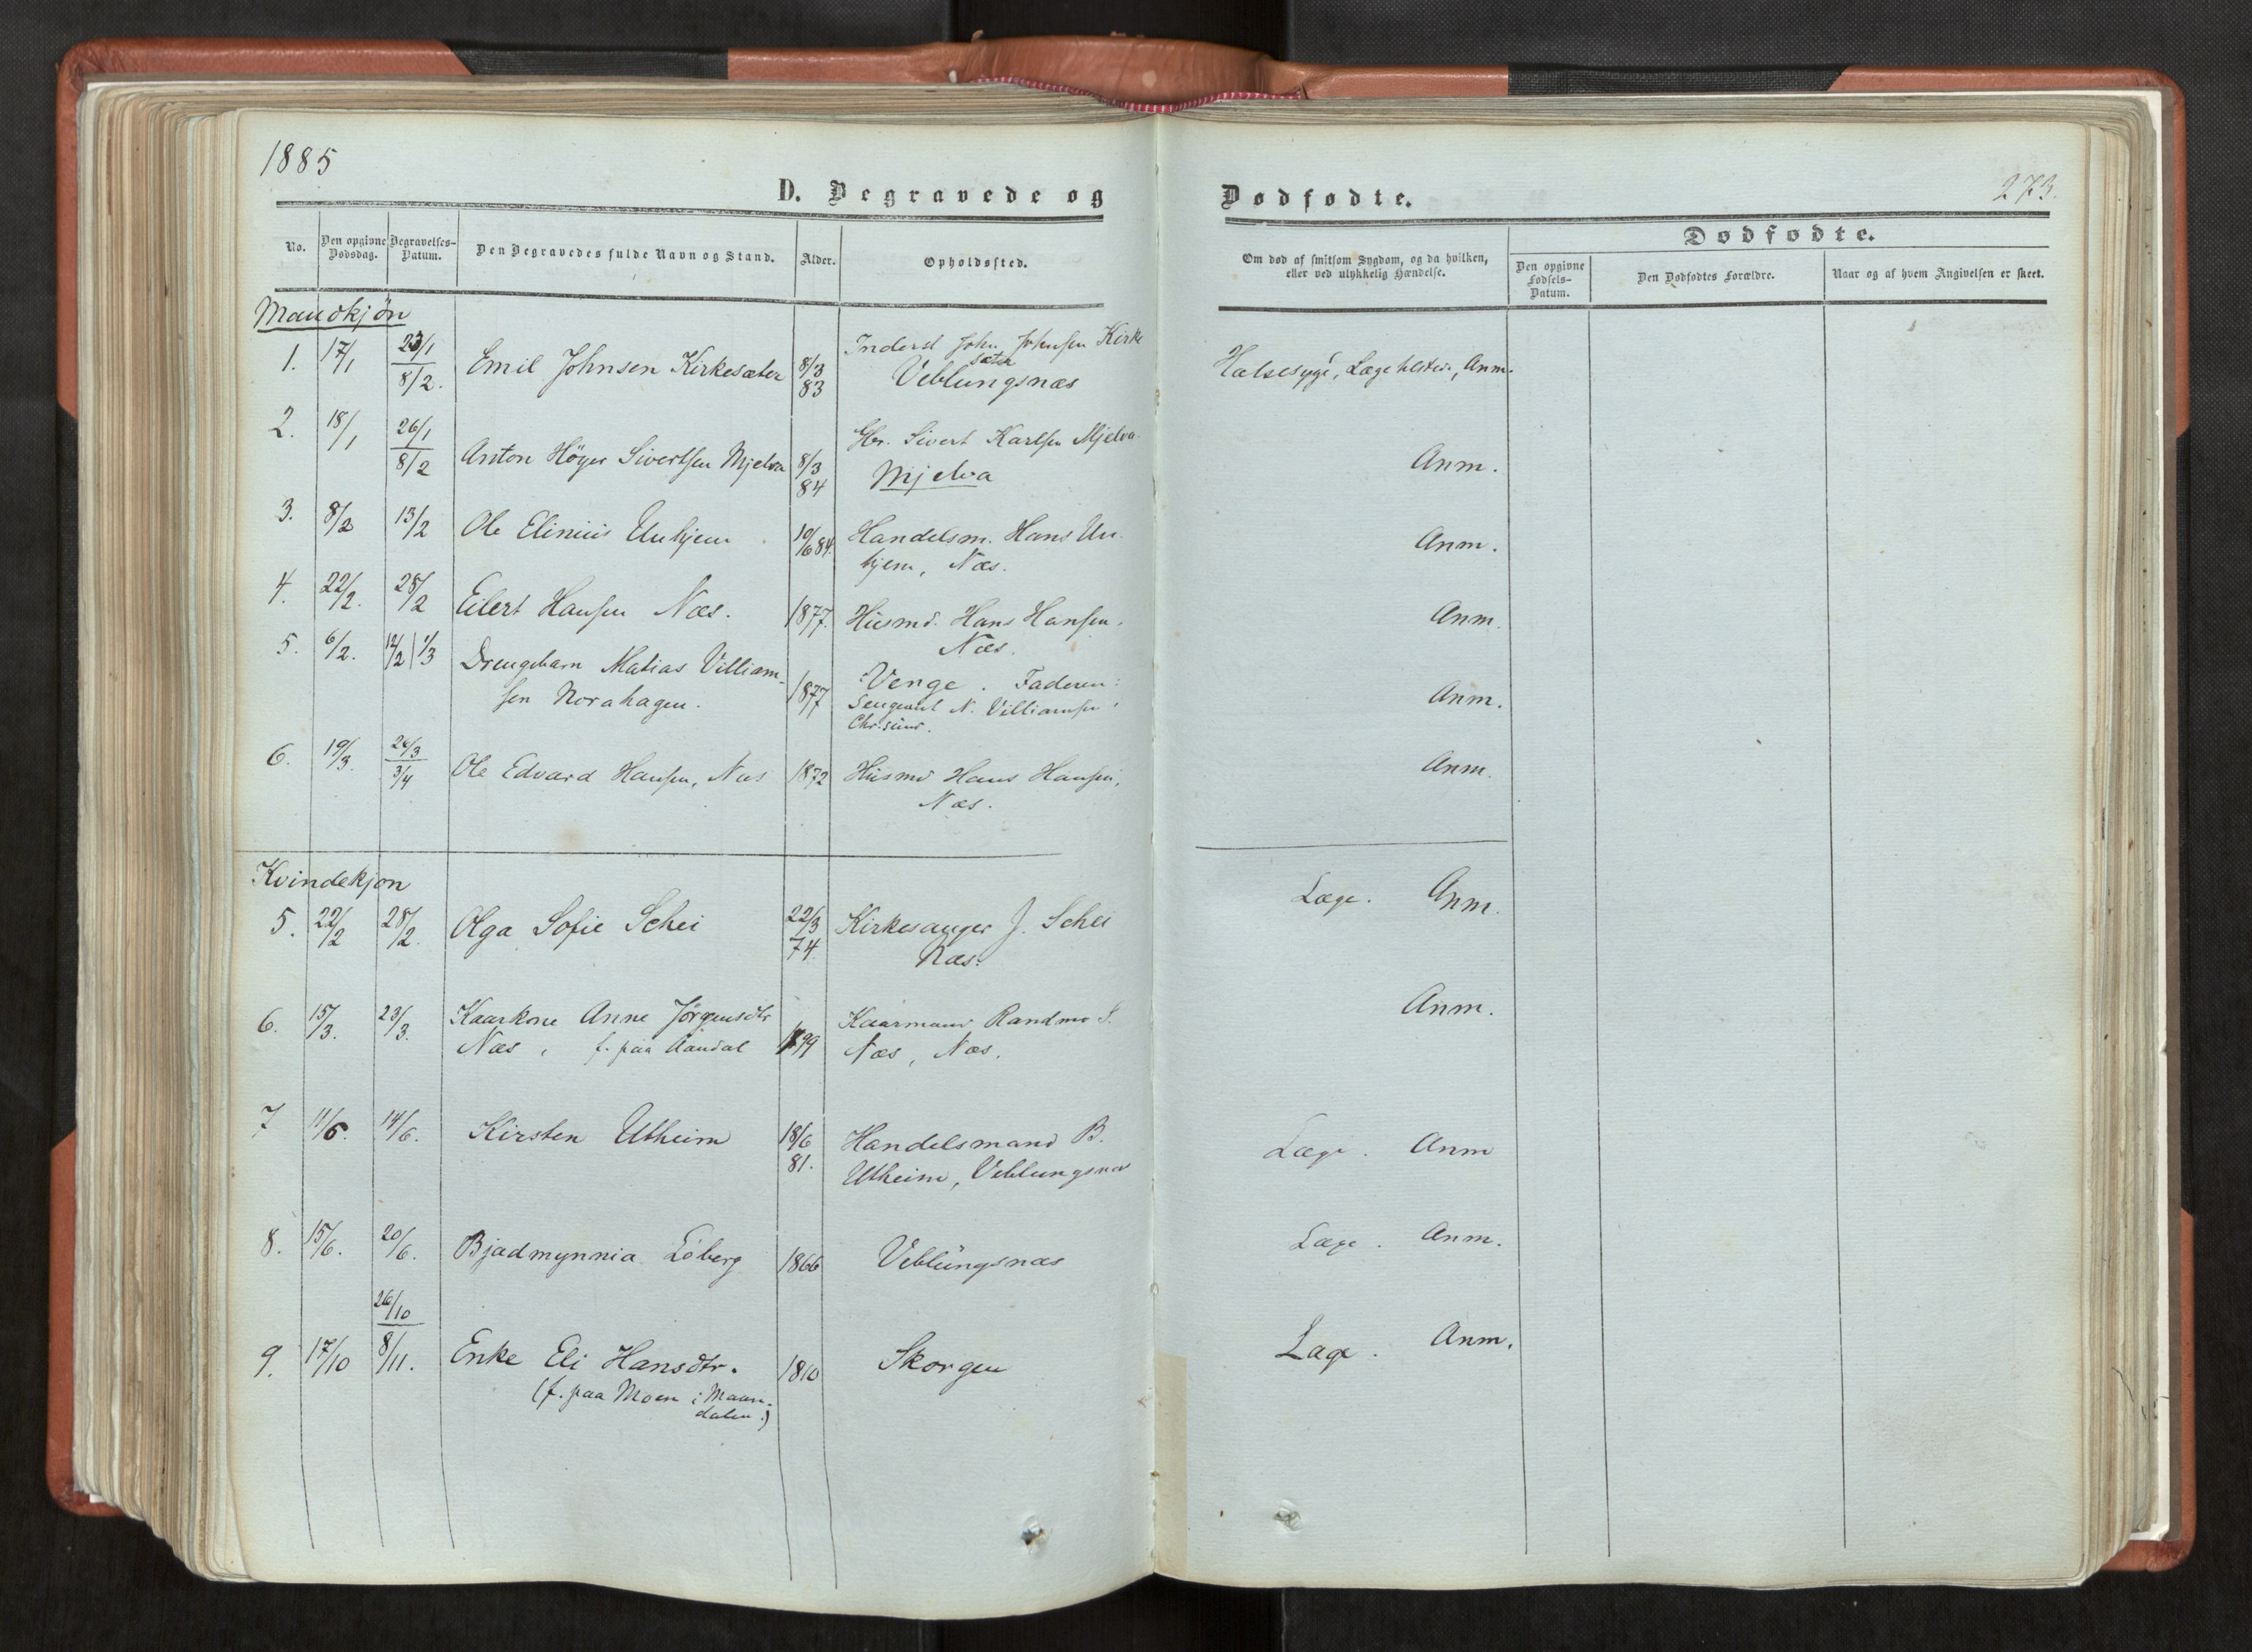 1885
D. Begravede og
Dødfødte.
273.
No.
Den opgivne Dødsdag.
Begravelses-Datum.
Den Begravedes fulde Navn og Stand.
Alder.
Opholdssted.
Om død af smitsom Sygdom, og da hvilken, eller ved ulykkelig Hændelse.
Dødfødte.
Den opgivne Fødsels-Datum.
Den Dødfødtes Forældre.
Naar og af hvem Angivelsen er skeet.
Mandkjøn
1. 17/1 23/1 8/2. Emil Johnsen Kirkesæter 8/3 83 Inderst John Johnsen Kirke
sæter
Veblungsnæs
Halsesyge, Læge, Anm.
2. 18/1 26/1 8/2 Anton Höyer Sivertsen Mjelva 8/3 84 Gbr. Sivert Karlsen Mjelva
Mjelva
Anm.
3. 8/2 13/2 Ole Elinius Unhjem 10/6 84. Handelsm. Hans Un-
hjem, Næs.
Anm.
4. 22/2. 28/2 Eilert Hansen Næs. 1877. Husmd. Hans Hansen,
Næs.
Anm.
5. 6/2. 12/2 | 1/3 Drengebarn Matias Villiam-
sen Norahagen. 1877
Venge. Faderen:
Sergeant N. Villiamsen,
Chr.sund.
Anm.
6. 19/3. 26/3 3/4 Ole Edvard Hansen, Næs 1872 Husmd Hans Hansen,
Næs.
Anm.
Kvindekjøn
5. 22/2 28/2. Olga Sofie Schei 22/3 74. Kirkesanger J. Schei
Næs.
Læge. Anm.
6. 15/3. 23/3. Kaarkone Anne Jørgensdtr
Næs, f. paa Aandal 1799
Kaarmand Randmo S.
Næs, Næs.
Anm.
7 11/6. 14/6. Kirsten Utheim 18/6 81. Handelsmand B.
Utheim, Veblungsnæs
Læge. Anm
8. 15/6. 20/6. Bjadmynnia Löberg 1866 Veblungsnæs
Læge. Anm.
26/10
9. 17/10 8/11. Enke Eli Hansdtr. 1810 Skorgen
(f. paa Moen i Maan-
dalen.)
Læge. Anm.